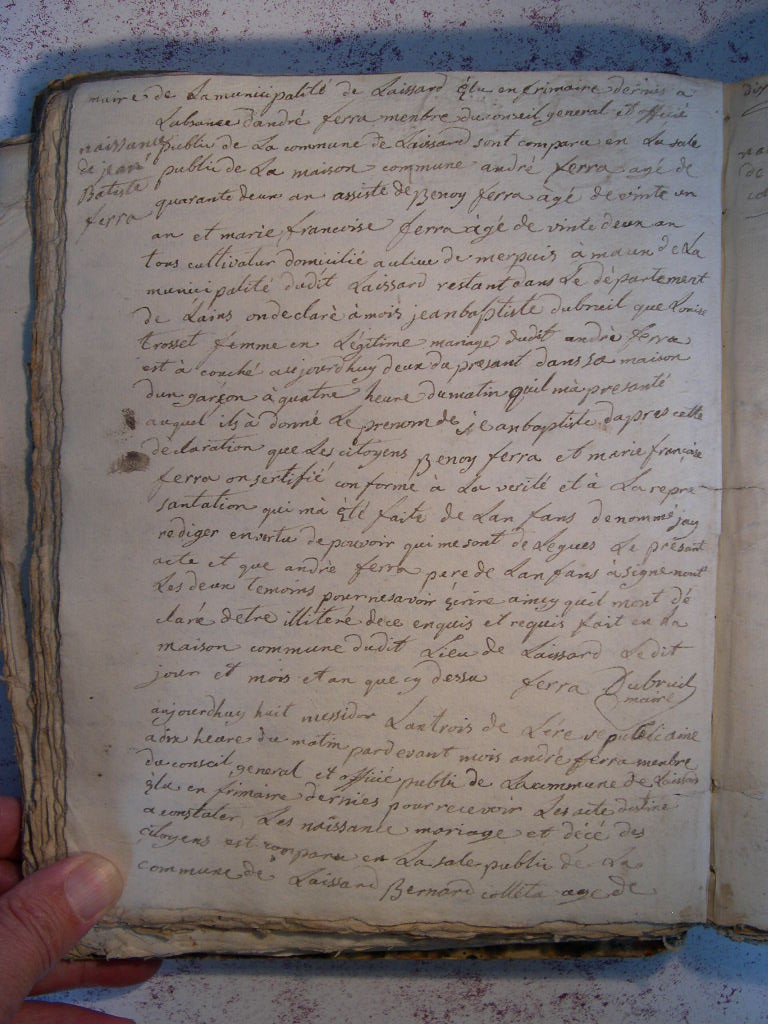 maire de La municipalité de Laissard Elu en frimaire dernies a
Labsance dandré ferra menbre du conseil general et officié
naissance
de jean
Batiste
ferra
public de La commune de Laissard sont compara en La sale
public de La maison commune andré ferra agé de
quarante deux an assisté de Benoy ferra àgé de vinte un
an et marie francoise ferra àgé de vinte deux an
tous cultivatur domicilié au lieu de merpuis à maun de La
municipalité dudit Laissard restant dans Le département
de Lains on declaré à mois jeanbaptiste dubreuil que Louise
trosset femme en Légitime mariage dudit andré ferra
est à couché aujourdhuy deux du presant dans sa maison
dun garçon à quatre heure du matin quil mà presanté
auquel ils à donné Le prenom de jeanbaptiste dapres cette
declaration que Les citoyens Benoy ferra et marie françoise
ferra on sertifié conforme à La verité et à La repre
santation qui mà Eté faite de Lanfans denommé jay
rediger en vertu de pouvoir qui me sont deLegues Le présant
acte et que andré ferra pere de Lanfans à signe nont
Les deux temoins pour ne savoir Ecrire aincy quil mont dé
claré detre illiteré de ce enquis et requis fait en La
maison commune dudit Lieu de Laissard Ledit
jour et mois et an que cy dessu ferra Dubreuil
maire
aujourdhuy huit messidor Lantrois de Lére republicaine
a dix heure du matin pardevant mois andré ferra menbre
du conseil general et officié public de La commune de Laissard
Elu en frimaire dernies pour recevoir Les acte destiné
a constater Les naissance mariage et décé des
citoyens est compara en La sale public de La
commune de Laissard Bernard colleta age de